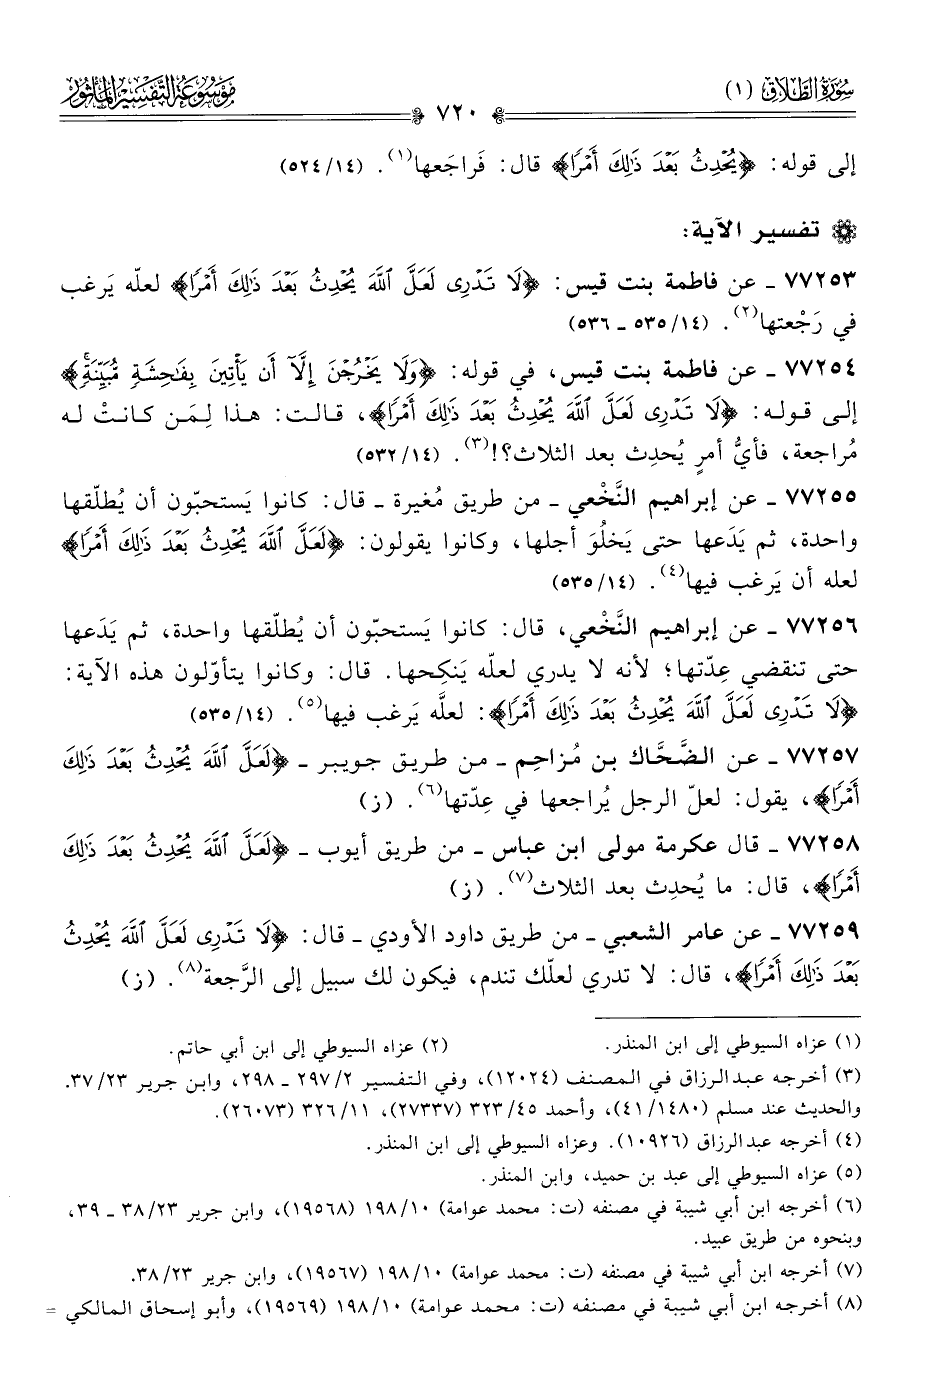 سُورَةُ الطَّلَاقِ (١)
٧٢٠
مَوْسُوعَةُ التَّفْسِيرِ المَأْثُورِ
إلى قوله: ﴿يُحْدِثُ بَعْدَ ذَٰلِكَ أَمْرًا﴾ قال: فَراجَعها(١). (١٤/ ٥٢٤)
تفسير الآية:
٧٧٢٥٣ ـ عن فاطمة بنت قيس: ﴿لَا تَدْرِى لَعَلَّ ٱللَّهَ يُحْدِثُ بَعْدَ ذَٰلِكَ أَمْرًا﴾ لعلّه يَرغب
في رَجْعتها(٢). (١٤/ ٥٣٥ ـ ٥٣٦)
٧٧٢٥٤ ـ عن فاطمة بنت قيس، في قوله: ﴿وَلَا يَخْرُجْنَ إِلَّآ أَن يَأْتِينَ بِفَٰحِشَةٍ مُّبَيِّنَةٍۚ﴾
إلى قوله: ﴿لَا تَدْرِى لَعَلَّ ٱللَّهَ يُحْدِثُ بَعْدَ ذَٰلِكَ أَمْرًا﴾، قالت: هذا لِمَن كانتْ له
مُراجعة، فأيُّ أمرٍ يُحدِث بعد الثلاث؟!(٣). (١٤/ ٥٣٢)
٧٧٢٥٥ ـ عن إبراهيم النَّخْعي ـ من طريق مُغيرة ـ قال: كانوا يَستحبّون أن يُطلّقها
واحدة، ثم يَدَعها حتى يَخلُوَ أجلها، وكانوا يقولون: ﴿لَعَلَّ ٱللَّهَ يُحْدِثُ بَعْدَ ذَٰلِكَ أَمْرًا﴾
لعله أن يَرغب فيها(٤). (١٤/ ٥٣٥)
٧٧٢٥٦ ـ عن إبراهيم النَّخْعي، قال: كانوا يَستحبّون أن يُطلّقها واحدة، ثم يَدَعها
حتى تنقضي عِدّتها؛ لأنه لا يدري لعلّه يَنكِحها. قال: وكانوا يتأوّلون هذه الآية:
﴿لَا تَدْرِى لَعَلَّ ٱللَّهَ يُحْدِثُ بَعْدَ ذَٰلِكَ أَمْرًا﴾: لعلَّه يَرغب فيها(٥). (١٤/ ٥٣٥)
٧٧٢٥٧ ـ عن الضَّحَّاك بن مُزاحِم ـ من طريق جويبر ـ ﴿لَعَلَّ ٱللَّهَ يُحْدِثُ بَعْدَ ذَٰلِكَ
أَمْرًا﴾، يقول: لعلّ الرجل يُراجعها في عِدّتها(٦). (ز)
٧٧٢٥٨ ـ قال عكرمة مولى ابن عباس ـ من طريق أيوب ـ ﴿لَعَلَّ ٱللَّهَ يُحْدِثُ بَعْدَ ذَٰلِكَ
أَمْرًا﴾، قال: ما يُحدِث بعد الثلاث(٧). (ز)
٧٧٢٥٩ ـ عن عامر الشعبي ـ من طريق داود الأودي ـ قال: ﴿لَا تَدْرِى لَعَلَّ ٱللَّهَ يُحْدِثُ
بَعْدَ ذَٰلِكَ أَمْرًا﴾، قال: لا تدري لعلّك تندم، فيكون لك سبيل إلى الرَّجعة(٨). (ز)
(١) عزاه السيوطي إلى ابن المنذر. (٢) عزاه السيوطي إلى ابن أبي حاتم.
(٣) أخرجه عبدالرزاق في المصنف (١٢٠٢٤)، وفي التفسير ٢/ ٢٩٧ ـ ٢٩٨، وابن جرير ٢٣/ ٣٧.
والحديث عند مسلم (١٤٨٠/ ٤١)، وأحمد ٤٥/ ٣٢٣ (٢٧٣٣٧)، ١١/ ٣٢٦ (٢٦٠٧٣).
(٤) أخرجه عبدالرزاق (١٠٩٢٦). وعزاه السيوطي إلى ابن المنذر.
(٥) عزاه السيوطي إلى عبد بن حميد، وابن المنذر.
(٦) أخرجه ابن أبي شيبة في مصنفه (ت: محمد عوامة) ١٠/ ١٩٨ (١٩٥٦٨)، وابن جرير ٢٣/ ٣٨ ـ ٣٩،
وبنحوه من طريق عبيد.
(٧) أخرجه ابن أبي شيبة في مصنفه (ت: محمد عوامة) ١٠/ ١٩٨ (١٩٥٦٧)، وابن جرير ٢٣/ ٣٨.
(٨) أخرجه ابن أبي شيبة في مصنفه (ت: محمد عوامة) ١٠/ ١٩٨ (١٩٥٦٩)، وأبو إسحاق المالكي =